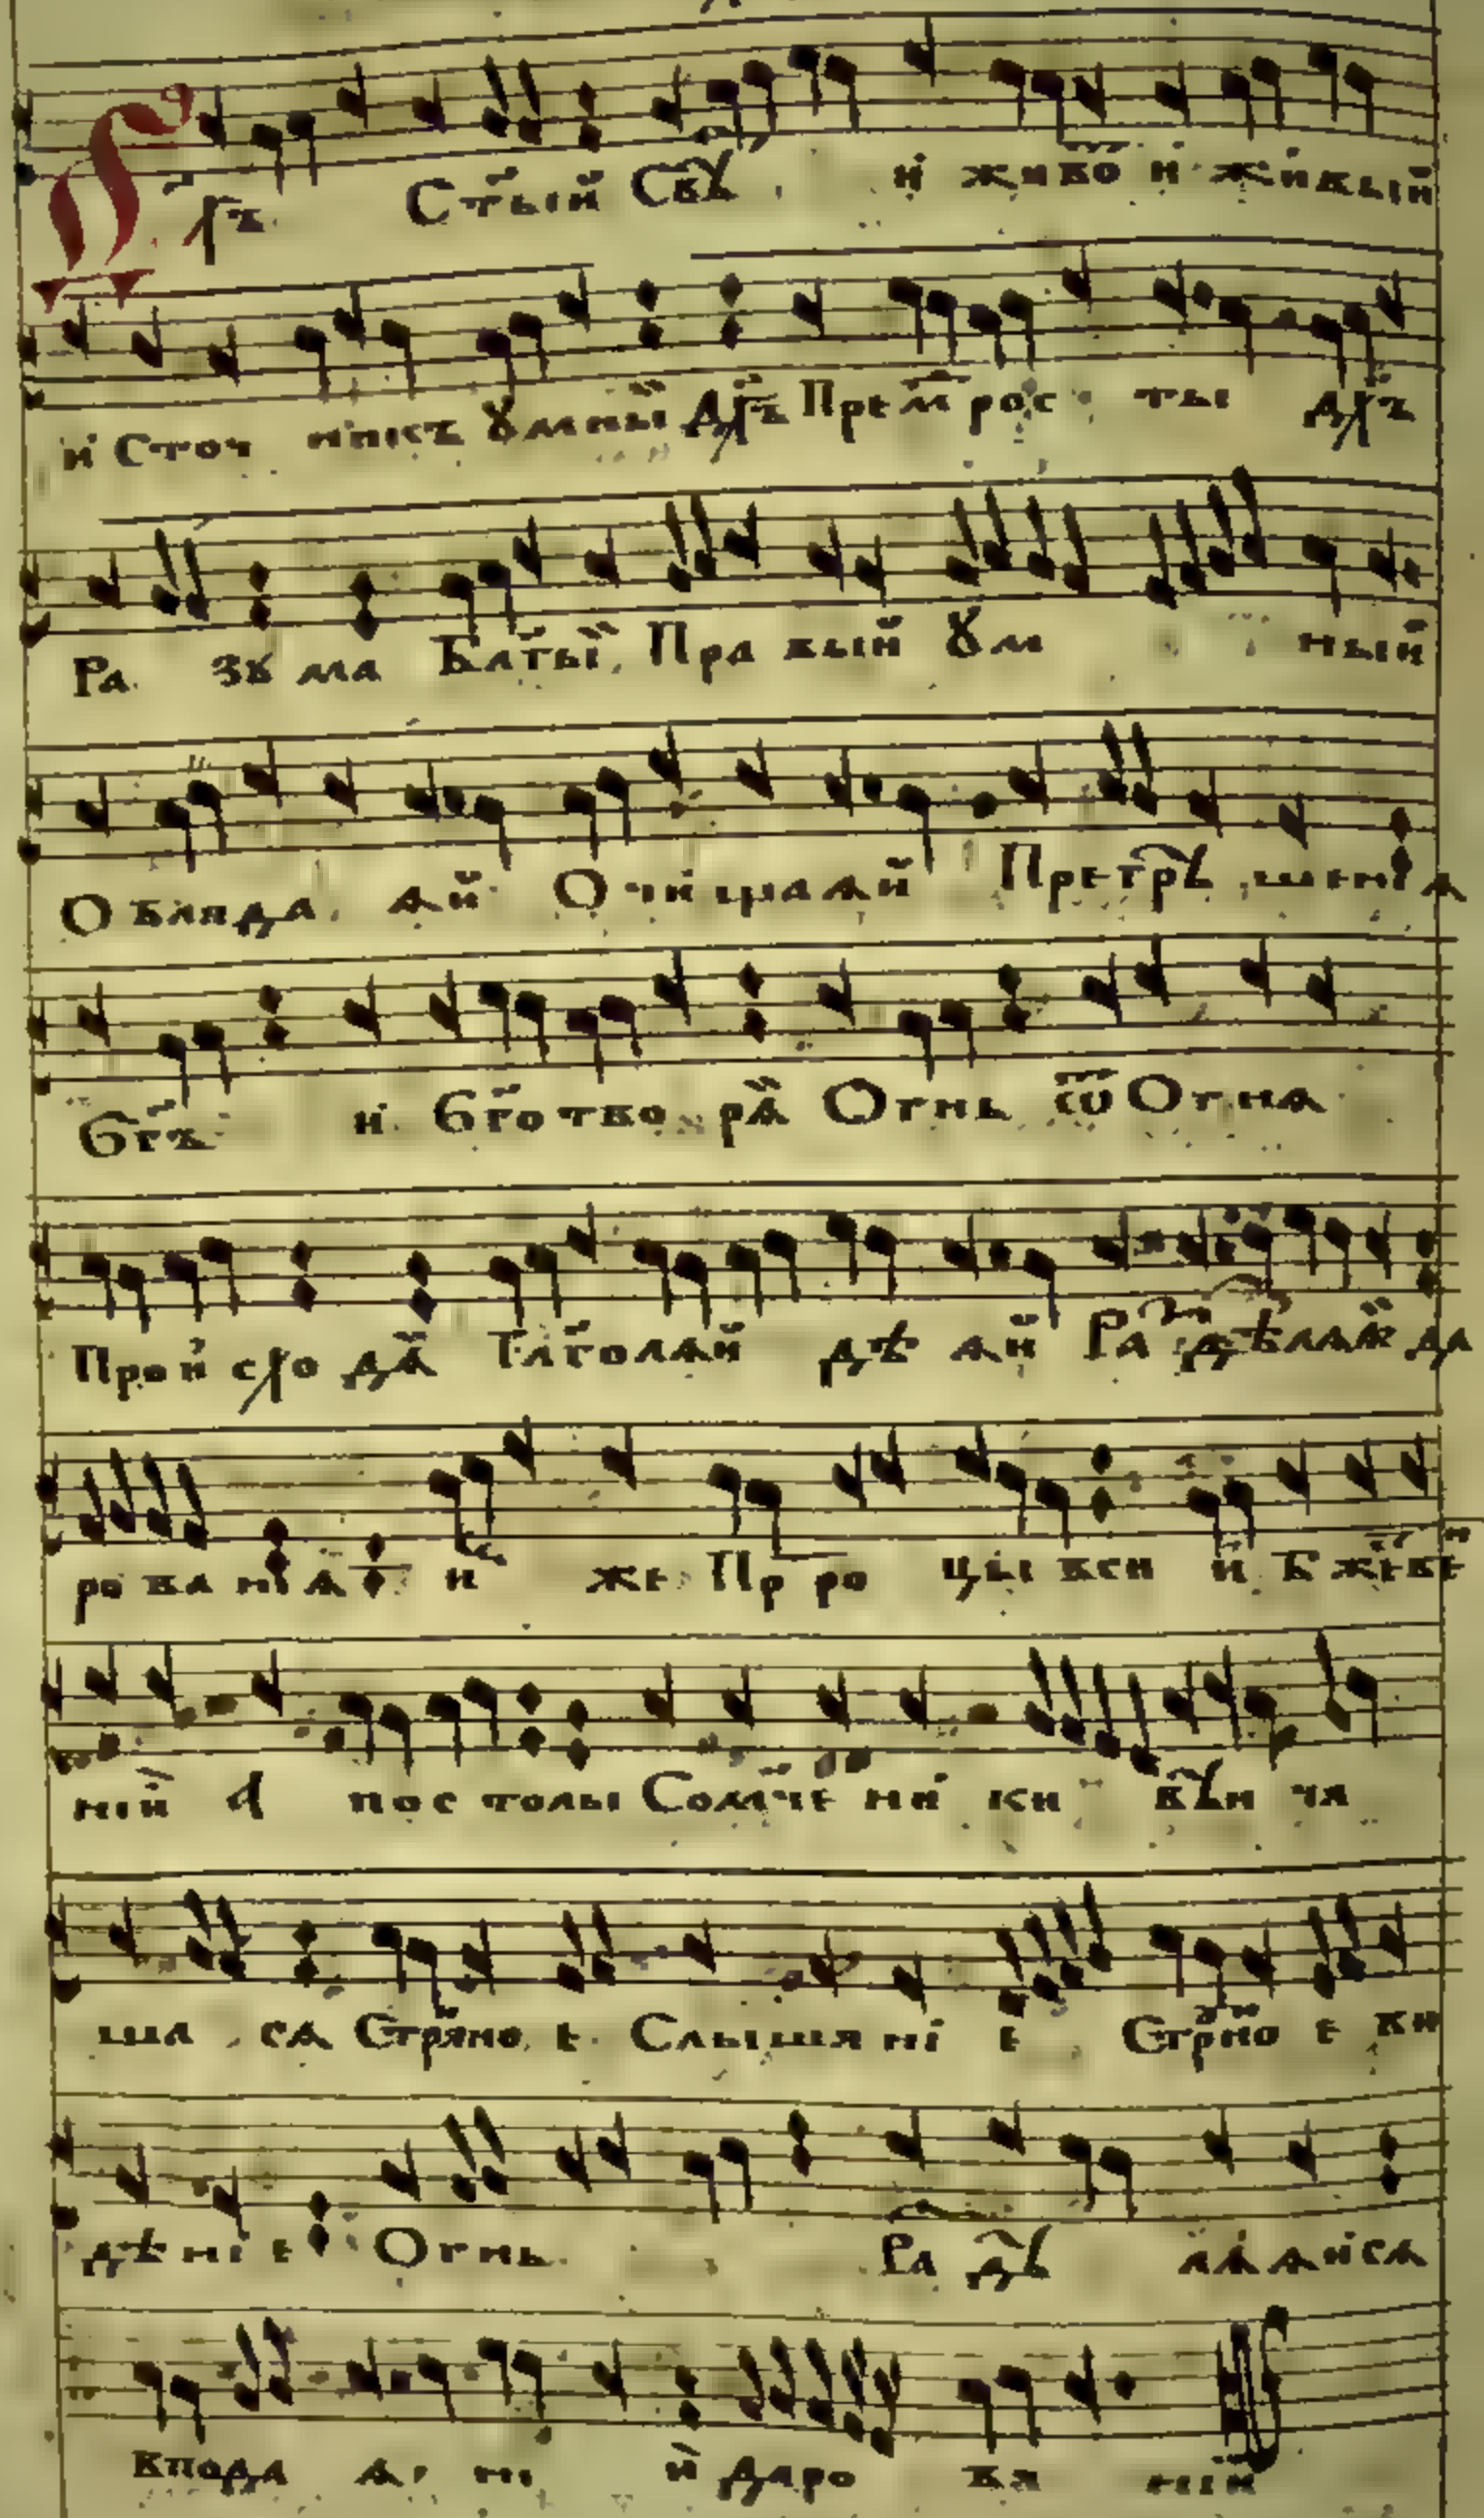 Д хъ Стый Свѣ и живо и живый
и Сточ никъ ꙋмный Дхъ Премрос ты дхъ
Ра зꙋ ма Благый Пра вый ꙋм ный
О блада ѧй Очи щаѧй Прегрѣ шенїѧ
Бгъ и Бготво рѧ Огнь ѿ Огнѧ
Прои схо дѧ Глаголѧй дѣ ѧй Ра дѣлѧѧ да
ро ва нїѧ и же Пр ро цы вси и Бжеве
нїи а пос толы Сомче ни ки вѣн ча
ша сѧ Странно е Слыша нї е Стрно е ви
дѣ нї е Огнь Ра дѣ лѧѧ ѧйсѧ
впода ѧ нї и даро ва нїй